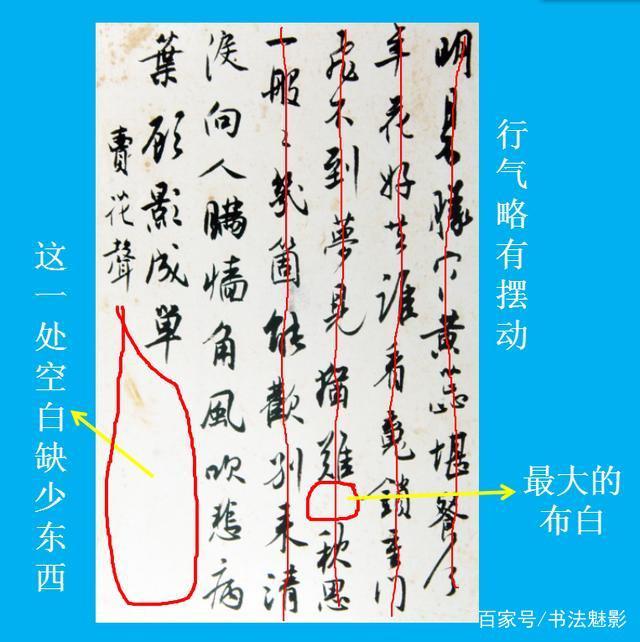 明黄蕊堪餐今
年花好共誰看竟鎖重門
飛不到夢見猶難秋思
一般〻幾箇能歡別來清
淚向人瞞墻角風吹悲病
葉顧影成單
賣花聲
行气略有摆动
最大的
布白
这一处空白缺少东西
百家号/书法魅影